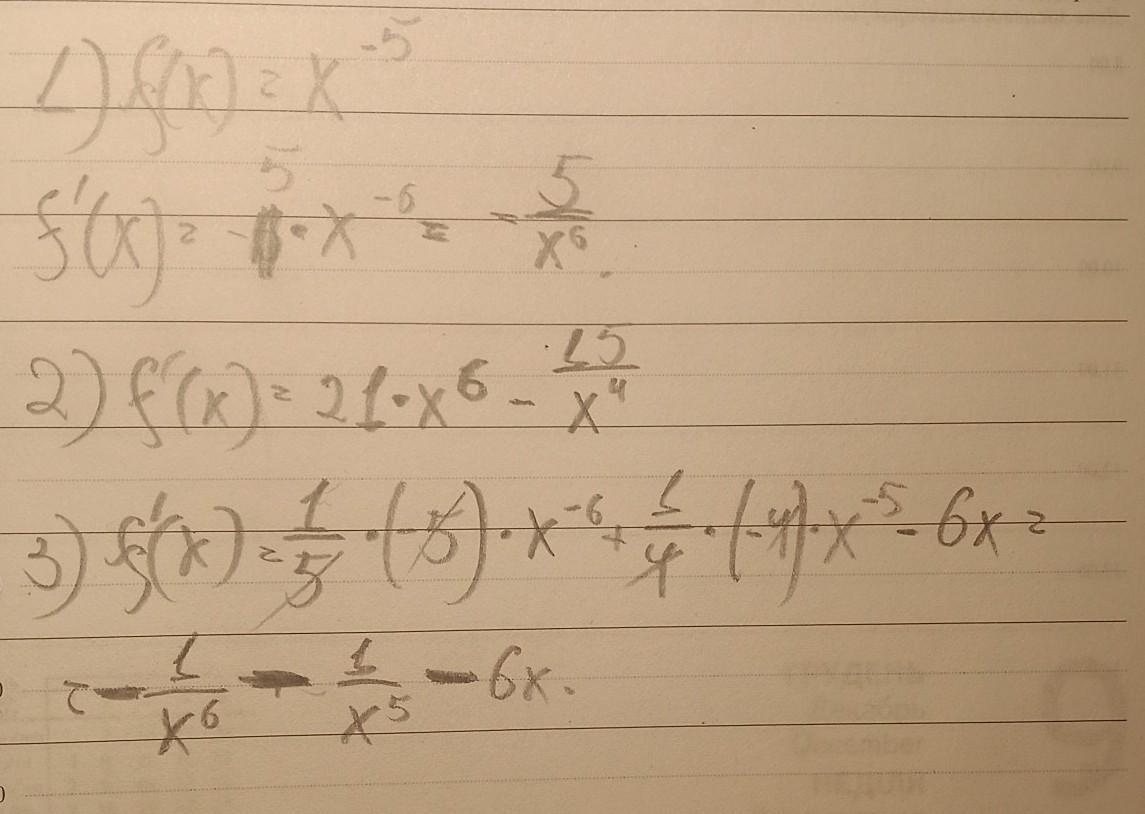 1) f(x) = x^-5
f'(x) = -5 · x^-6 = -5/x^6.
2) f'(x) = 21 · x^6 - 15/x^4
3) f'(x) = 1/5 · (-5) · x^-6 + 1/4 · (-4) · x^-5 - 6x =
= - 1/x^6 - 1/x^5 - 6x.
ГРУДЕНЬ
Декабрь
December
НЕДІЛЯ
9